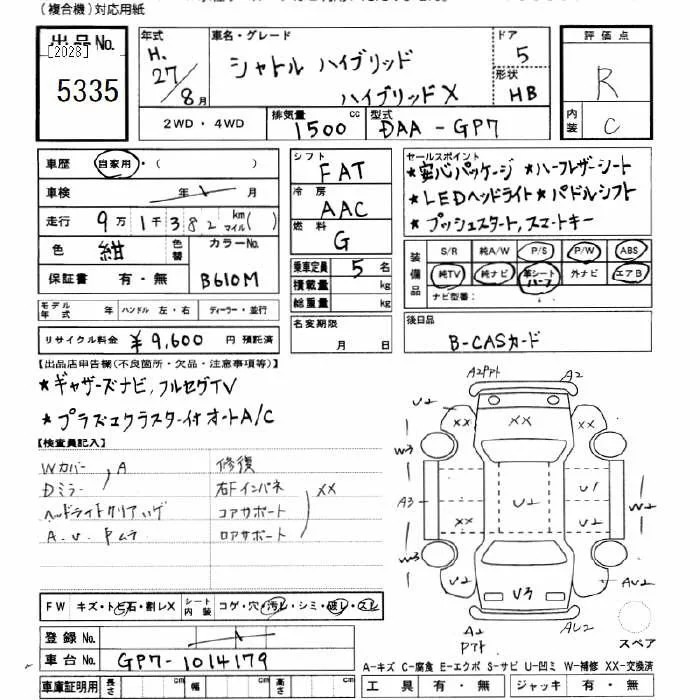 (複合機)対応用紙
出品No. [2028] 5335
年式 H. 27/8月
車名・グレード シャトル ハイブリッド
ハイブリッドX
ドア 5
形状 HB
評価点 R
内装 C
2WD・4WD
排気量 1500 cc
型式 DAA-GP7
車歴 自家用・( )
車検 年 月
走行 9万1千382 km マイル( )
色 紺 色替 カラーNo. B610M
保証書 有・無
シフト FAT
冷房 AAC
燃料 G
乗車定員 5名
積載量 kg
総重量 kg
セールスポイント
★安心パッケージ ★ハーフレザーシート
★LEDヘッドライト★パドルシフト
★プッシュスタート,スマートキー
装備品 S/R 純A/W P/S P/W ABS
純TV 純ナビ 革シート ハーフ 外ナビ エアB
ナビ型番:
モデル年式 年 ハンドル 左・右 ディーラー・並行
リサイクル料金 ¥9,600 円 預託済
名変期限 月 日
後日品
B-CASカード
【出品店申告欄(不良箇所・欠品・注意事項等)】
★ギャザーズナビ,フルセグTV
★プラズマクラスター付オートA/C
【検査員記入】
Wカバー A 修復
Dミラー 右Fインパネ XX
コアサポート
A.U.Pムラ ロアサポート
A2 A2
U2 XX XX
W3
A3 U2 U1 W2
XX U2
W3
U2 V3 AU2
A2 AU2
スペア
FW キズ・トビ石・割レX シート内装 コゲ・穴・汚レ・シミ・破レ・スレ
登録No.
車台No. GP7-1014179
車庫証明用 長さ cm 幅 cm 高さ cm
A-キズ C-腐食 E-エクボ S-サビ U-凹ミ W-補修 XX-交換済
工具 有・無 ジャッキ 有・無